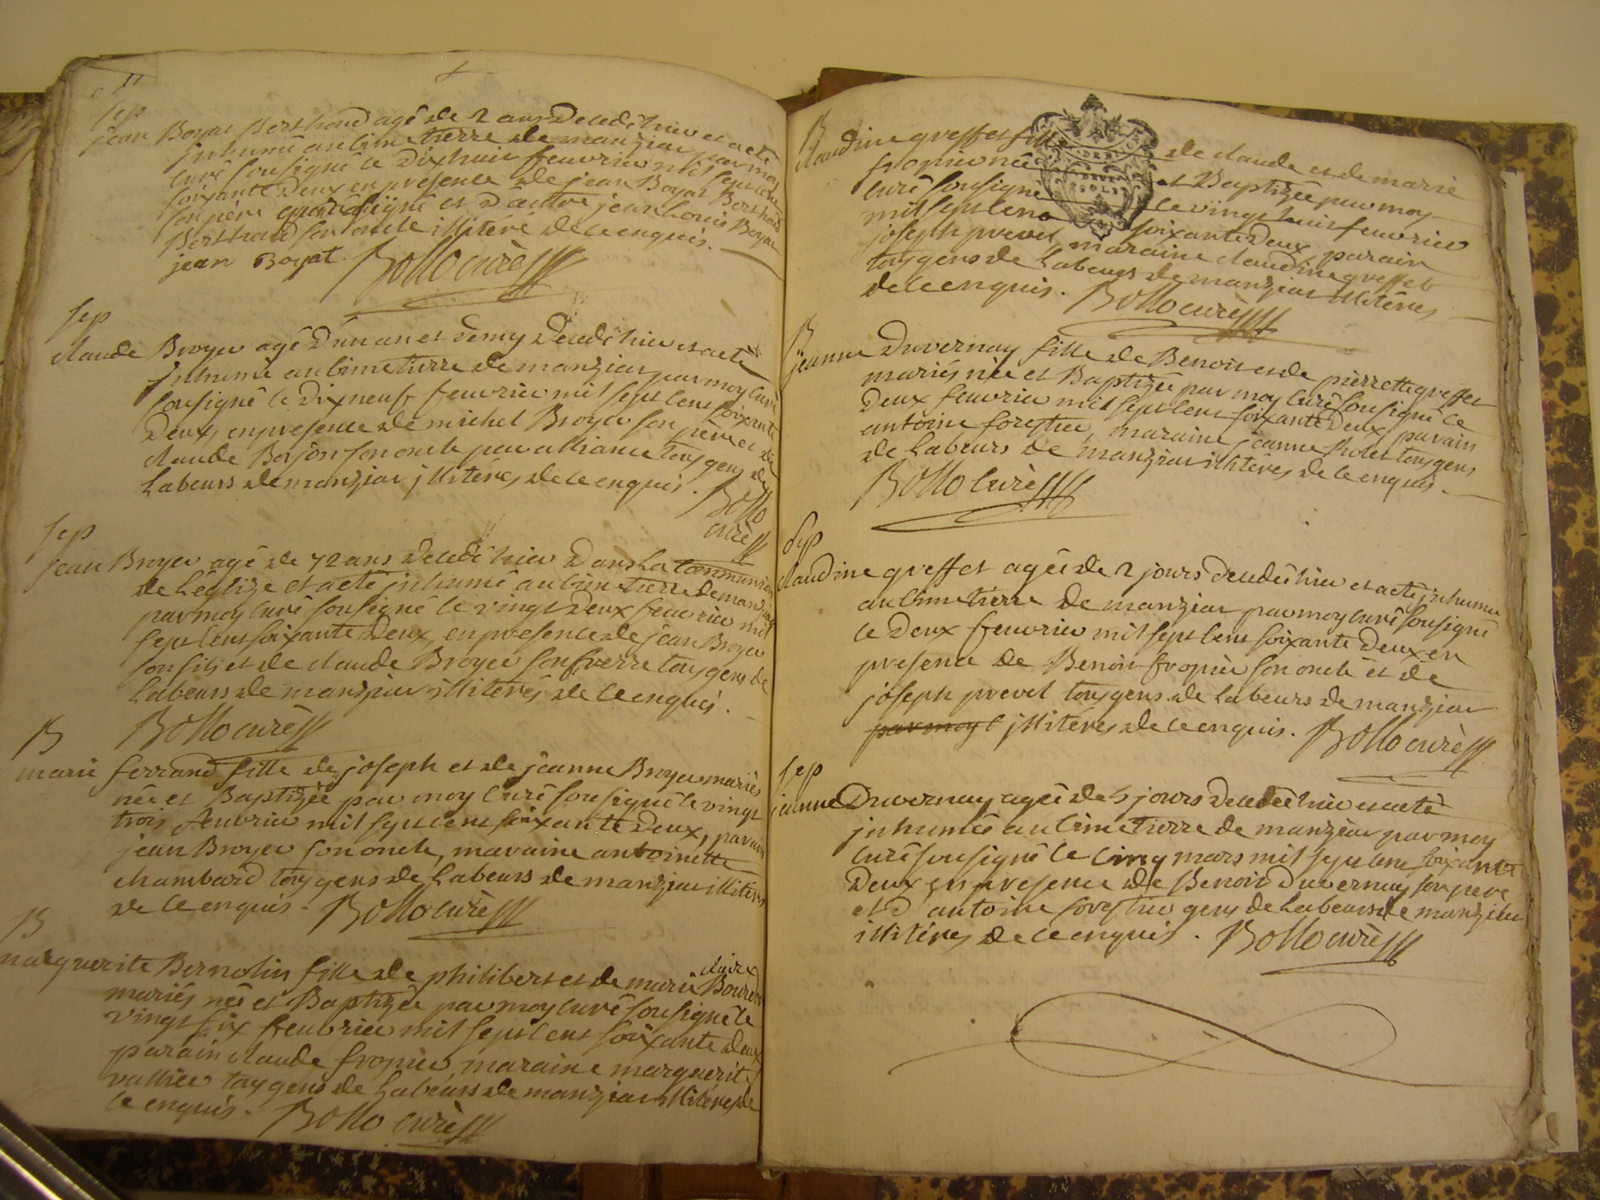 11
sep
jean Boyat Berthoud agé de 2 ans decedé hier et a eté
inhumé au cimetierre de manziat par moy
curé sousigné le dixhuit fevrier mil sept cent
soixante deux en presence de jean Boyat Berthoud
son père qui a signé et d'autre jean Louis Boyat
Berthoud son oncle illitéré de ce enquis.
jean Boyat. Bollo curé
sep
claude Broyer agé d'un an et demy decedé hier et a eté
inhumé au cimetierre de manziat par moy curé
sousigné le dixneuf fevrier mil sept cent soixante
deux, en presence de michel Broyer son père et de
claude Bojon son oncle par alliance tous gens de
Labeurs de manziat illitérés de ce enquis. Bollo
curé
sep
jean Broyer agé de 72 ans decedé hier dans la communion
de L'eglize et a eté inhumé au cimetierre de manziat
par moy curé sousigné le vingt deux fevrier mil
sept cent soixante deux, en presence de jean Broyer
son fils et de claude Broyer son frerre tous gens de
Labeurs de manziat illitérés de ce enquis.
Bollo curé
B
marie ferrand fille de joseph et de jeanne Broyer mariés
née et Baptizée par moy curé sousigné le vingt
trois fevrier mil sept cent soixante deux, parain
jean Broyer son oncle, maraine antoinette
chambard tous gens de Labeurs de manziat illitérés
de ce enquis. Bollo curé
B
marguerite Bernolin fille de philibert et de marie claire
mariés née et Baptizée par moy curé sousigné le
vingt six fevrier mil sept cent soixante deux
parain claude fropier, maraine marguerite
vallier tous gens de Labeurs de manziat illitérés de
ce enquis. Bollo curé
B
claudine greffet fille de claude et de marie
fropier née et Baptizée par moy
curé sousigné le vingt huit fevrier
mil sept cent soixante deux, parain
joseph prevel, maraine claudine greffet
tous gens de Labeurs de manziat illitérés
de ce enquis. Bollo curé
B
jeanne Duvernay fille de Benoit et de pierrette greffet
mariés née et Baptizée par moy curé sousigné le
deux fevrier mil sept cent soixante deux, parain
antoine forestier, maraine jeanne tous gens
de Labeurs de manziat illitérés de ce enquis.
Bollo curé
sep
claudine greffet agée de 2 jours decedé hier et a eté inhumé
au cimetierre de manziat par moy curé sousigné
le deux fevrier mil sept cent soixante deux en
presence de Benoit fropier son oncle et de
joseph prevel tous gens de Labeurs de manziat
par moy c illitérés de ce enquis. Bollo curé
sep
jeanne Duvernay agée de 5 jours decedée hier et a eté
inhumée au cimetierre de manziat par moy
curé sousigné le cinq mars mil sept cent soixante
deux en presence de Benoit Duvernay son pere
et d'antoine forestier gens de Labeurs de manziat
illitérés de ce enquis. Bollo curé